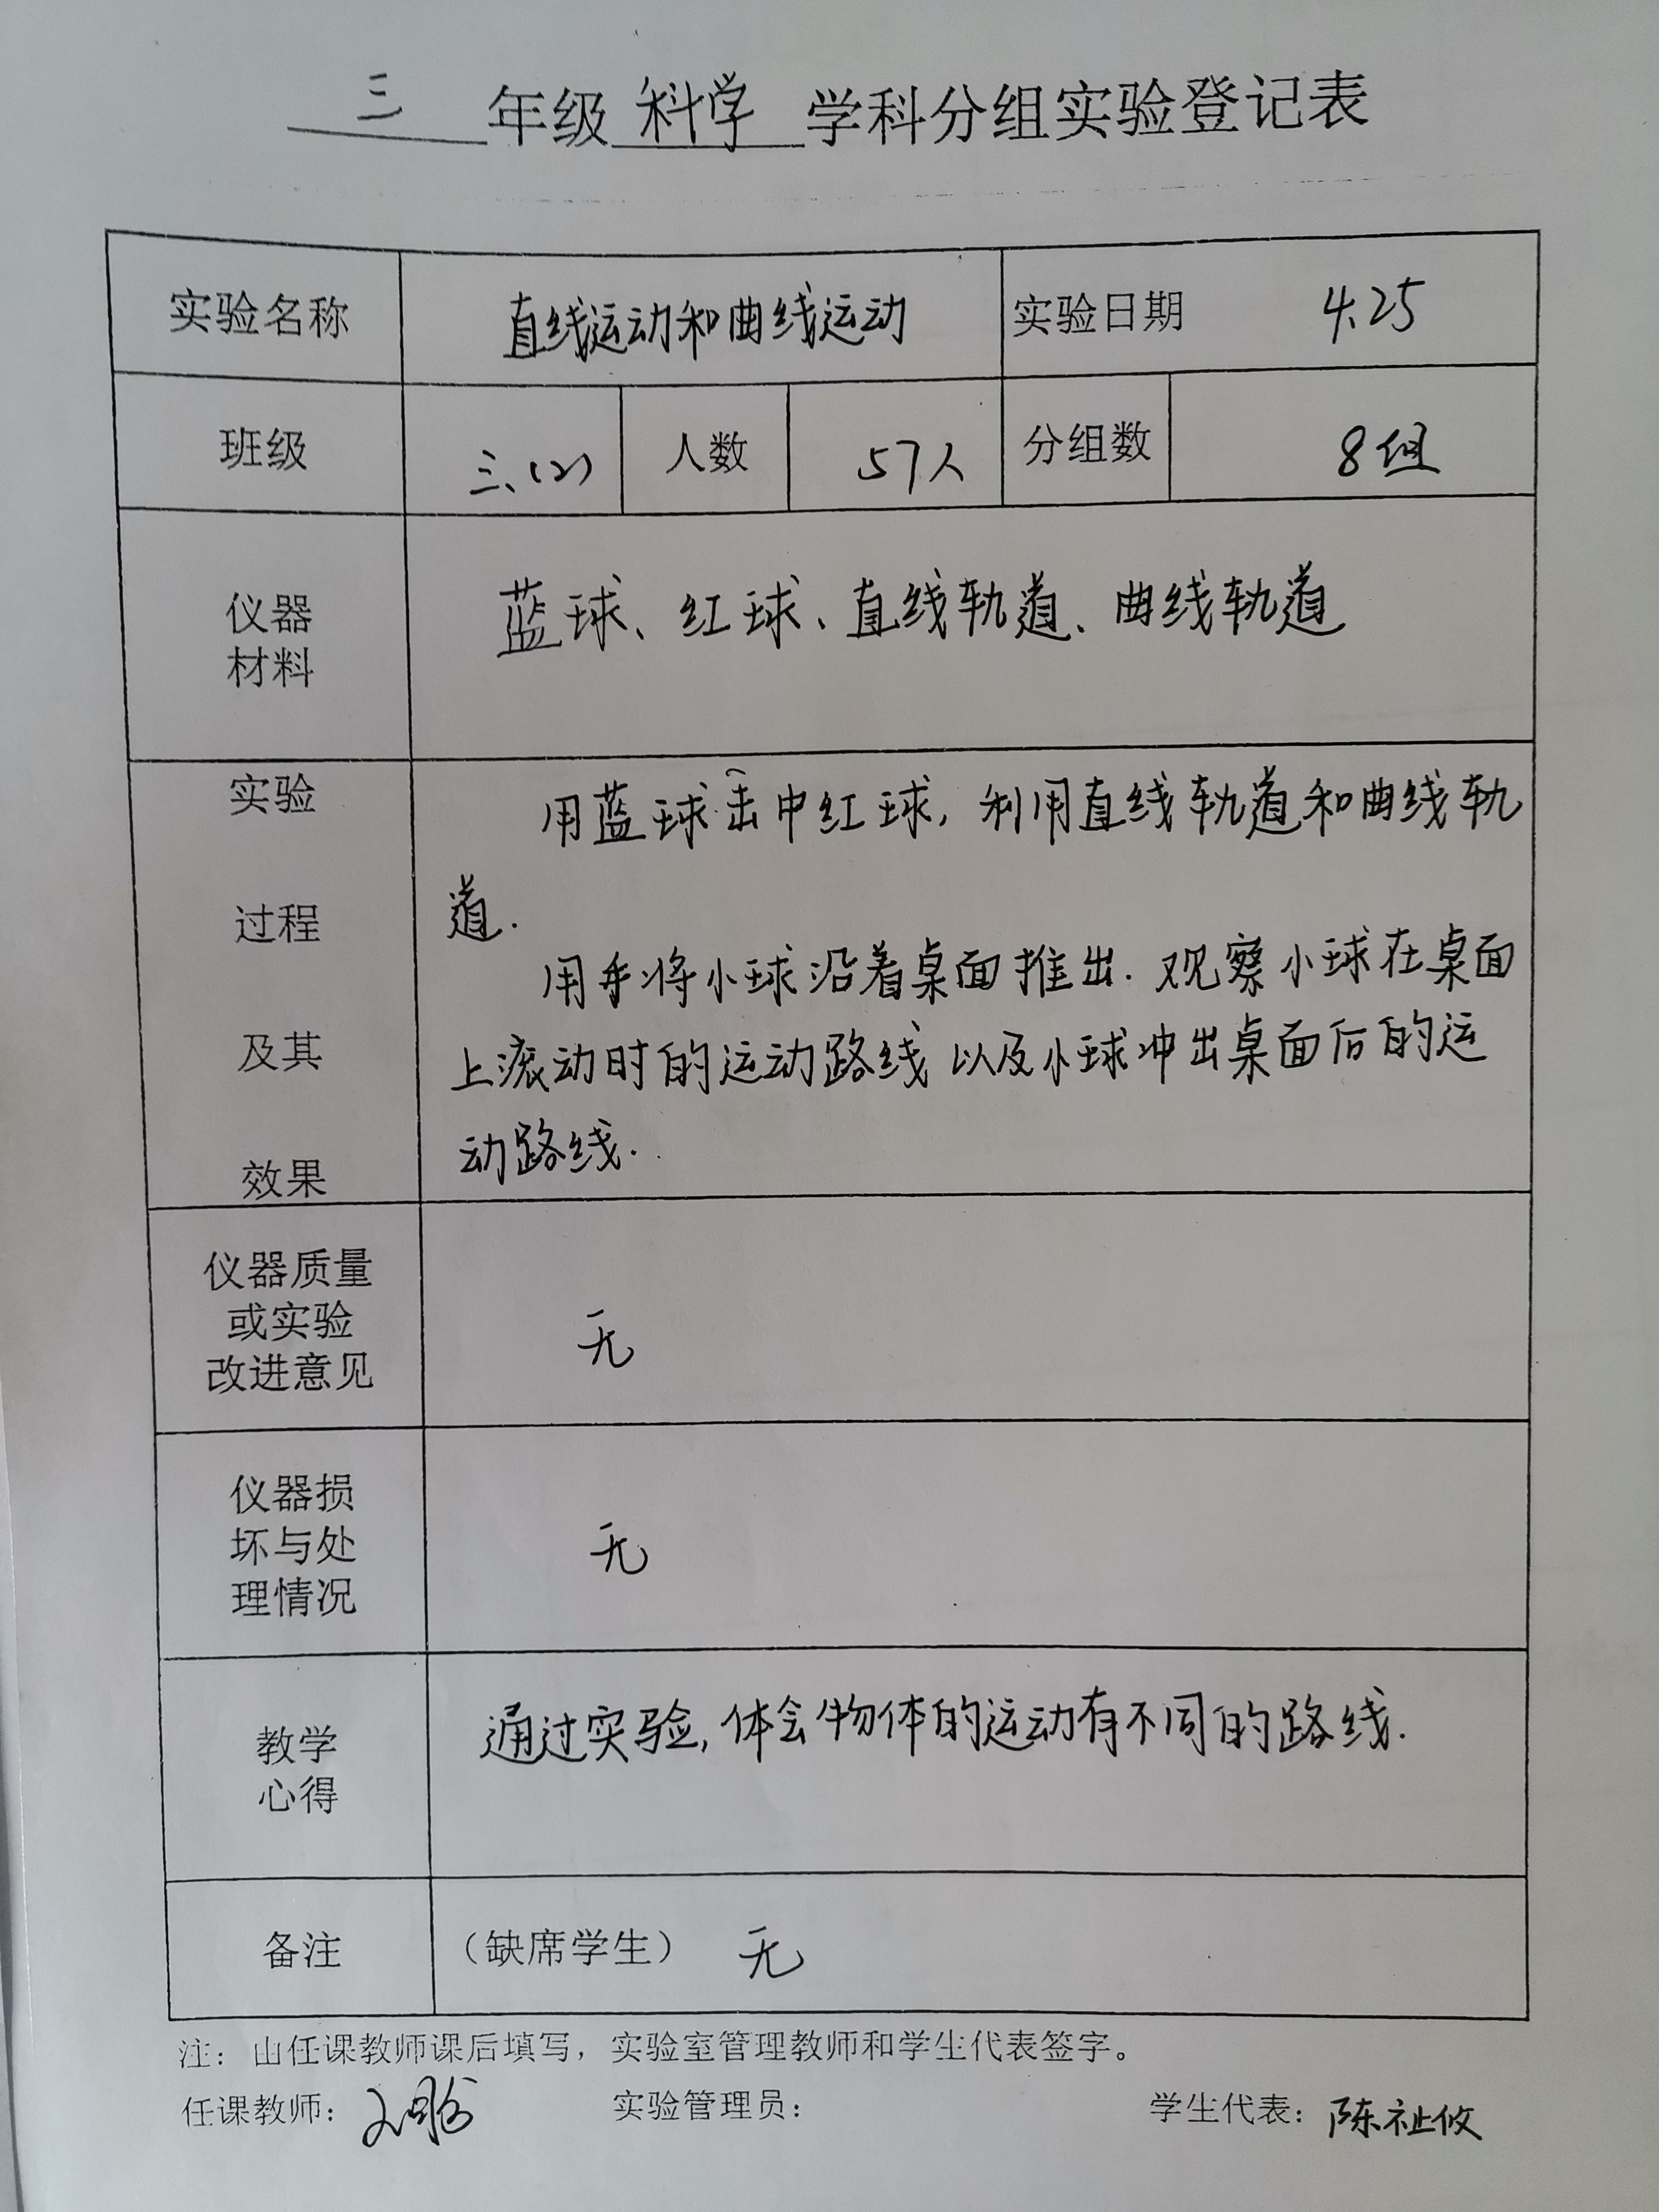 三 年级 科学 学科分组实验登记表
实验名称 直线运动和曲线运动 实验日期 4.25
班级 三、(2) 人数 57人 分组数 8组
仪器
材料
蓝球、红球、直线轨道、曲线轨道
实验
过程
及其
效果
用蓝球击中红球,利用直线轨道和曲线轨
道.
用手将小球沿着桌面推出.观察小球在桌面
上滚动时的运动路线以及小球冲出桌面后的运
动路线.
仪器质量
或实验
改进意见
无
仪器损
坏与处
理情况
无
教学
心得
通过实验,体会物体的运动有不同的路线.
备注 (缺席学生) 无
注:由任课教师课后填写,实验室管理教师和学生代表签字。
任课教师: 实验管理员: 学生代表:陈祉攸